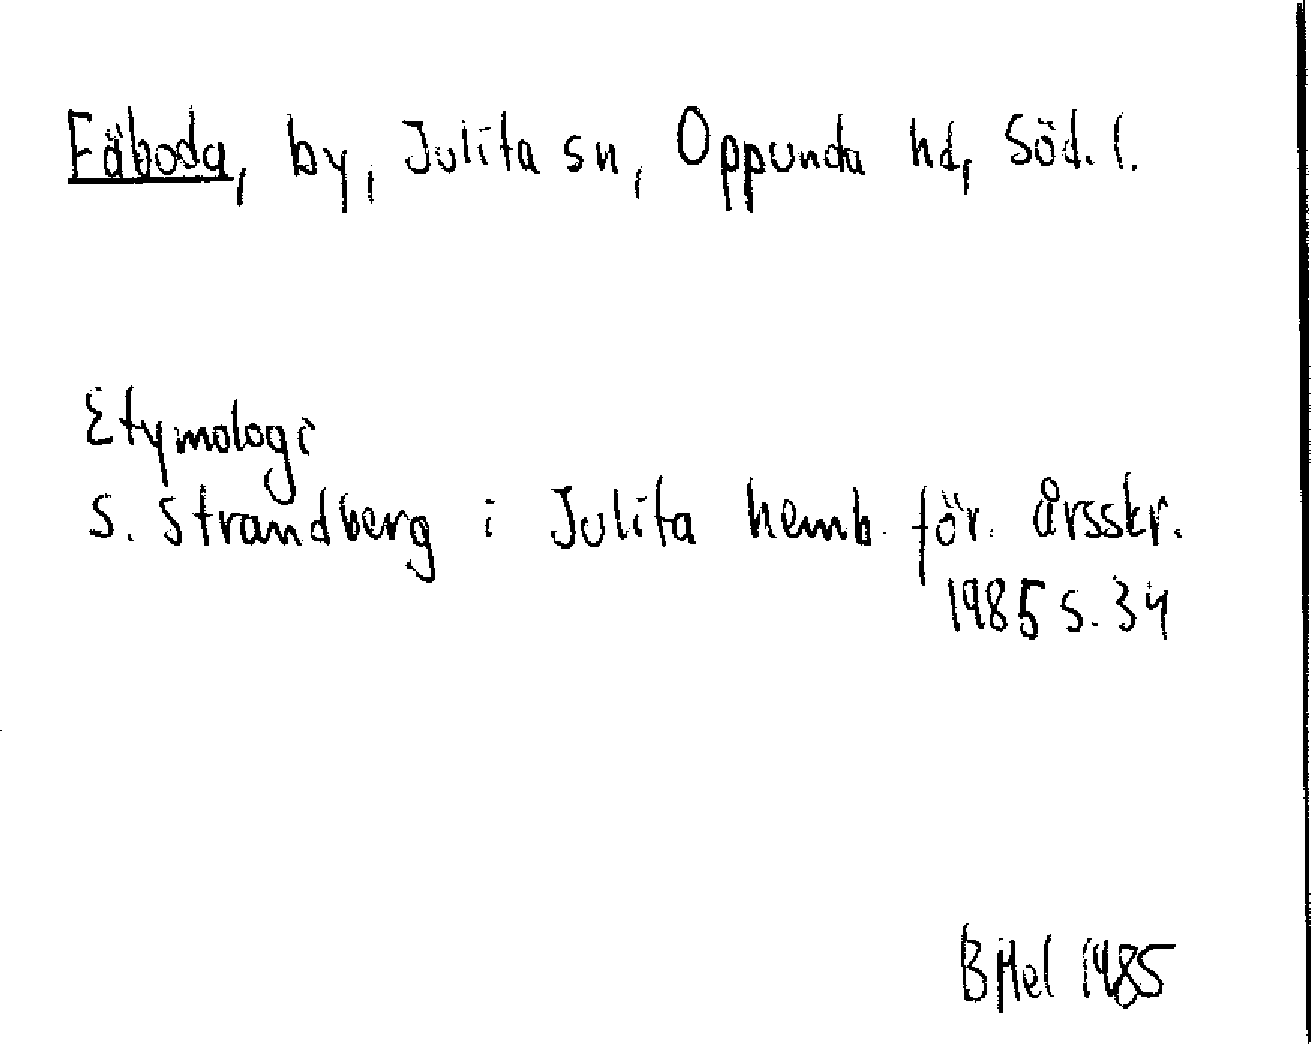 Fäboda, by, Julita sn, Oppunda hd, Söd. l.
Etymologi
S. Strandberg i Julita hemb. för. årsskr.
1985 s. 34
BHel 1985